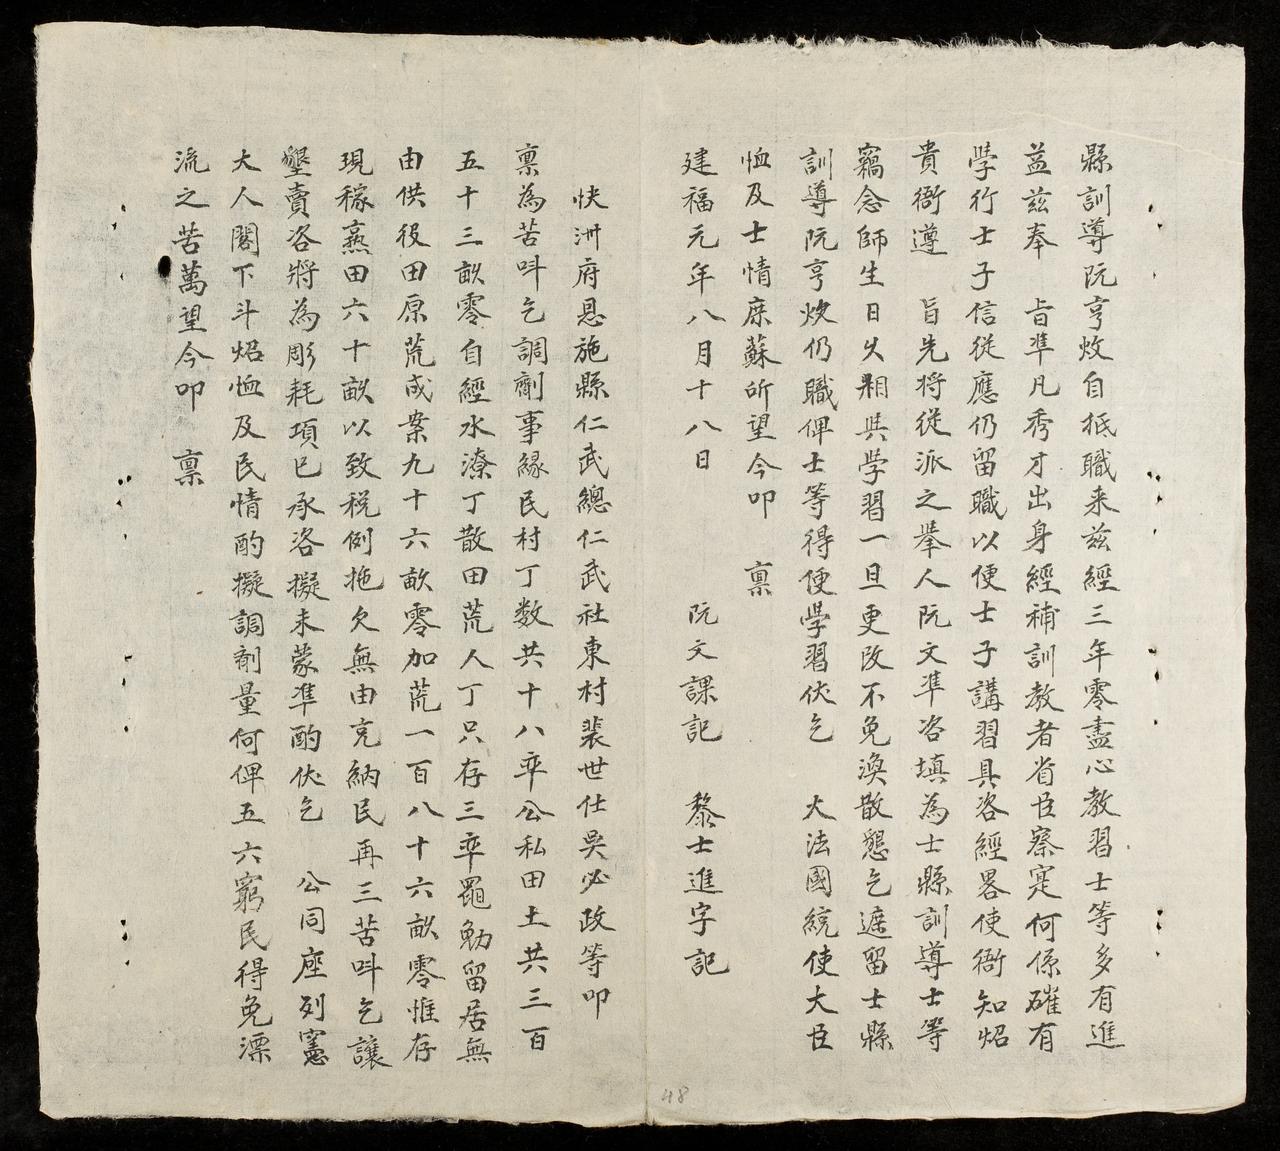 縣訓導阮亨炆自抵職来兹經三年零盡心教習士等多有進
益兹奉　旨準凡秀才出身經補訓教者省臣察寔何係確有
學行士子信從應仍留職以便士子講習具咨經畧使衙知炤
貴衙遵　旨先将從派之舉人阮文準咨填為士縣訓導士等
竊念師生日久相與學習一旦更改不免渙散懇乞遮留士縣
訓導阮亨炆仍職俾士等得便學習伏乞　大法國統使大臣
恤及士情庶蘇所望今叩　稟
建福元年八月十八日　阮文課記　黎士進字記
快洲府恩施縣仁武總仁武社東村裴世仕吳必政等叩
稟為苦呌乞調劑事緣民村丁数共十八率公私田土共三百
五十三畝零自經水潦丁散田荒人丁只存三率黽勉留居無
由供役田原荒成案九十六畝零加荒一百八十六畝零惟存
現稼熹田六十畝以致税例拖欠無由克納民再三苦呌乞讓
墾賣咨將為彫耗項已承咨擬未蒙準酌伏乞　公同座列憲
大人閣下斗炤恤及民情酌擬調劑量何俾五六窮民得免漂
流之苦萬望今叩　稟
48